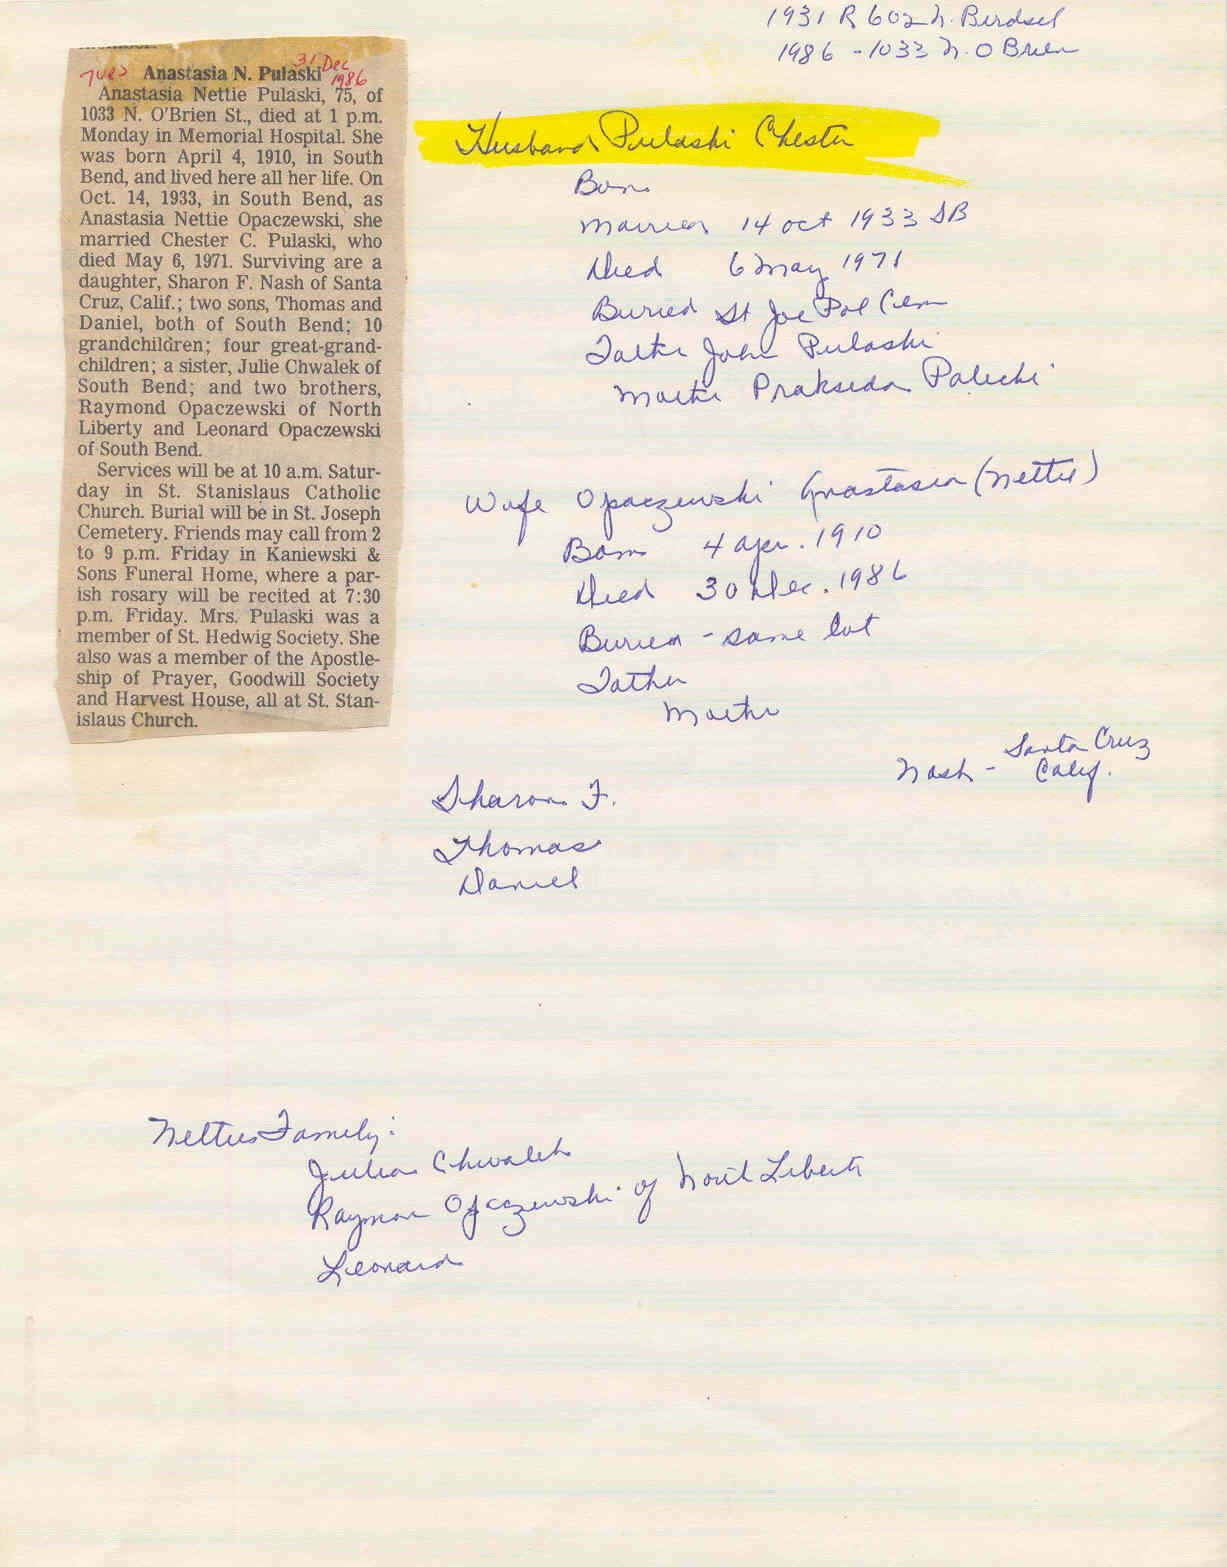 1931 R 602 N. Birdsel
1986 - 1033 N. O Brien
Tues 31 Dec 1986
Anastasia N. Pulaski
Anastasia Nettie Pulaski, 75, of
1033 N. O'Brien St., died at 1 p.m.
Monday in Memorial Hospital. She
was born April 4, 1910, in South
Bend, and lived here all her life. On
Oct. 14, 1933, in South Bend, as
Anastasia Nettie Opaczewski, she
married Chester C. Pulaski, who
died May 6, 1971. Surviving are a
daughter, Sharon F. Nash of Santa
Cruz, Calif.; two sons, Thomas and
Daniel, both of South Bend; 10
grandchildren; four great-grand-
children; a sister, Julie Chwalek of
South Bend; and two brothers,
Raymond Opaczewski of North
Liberty and Leonard Opaczewski
of South Bend.
Services will be at 10 a.m. Satur-
day in St. Stanislaus Catholic
Church. Burial will be in St. Joseph
Cemetery. Friends may call from 2
to 9 p.m. Friday in Kaniewski &
Sons Funeral Home, where a par-
ish rosary will be recited at 7:30
p.m. Friday. Mrs. Pulaski was a
member of St. Hedwig Society. She
also was a member of the Apostle-
ship of Prayer, Goodwill Society
and Harvest House, all at St. Stan-
islaus Church.
Husband Pulaski Chester
Born
Married 14 oct 1933 SB
Died 6 May 1971
Buried St Joe Pol Cem
Father John Pulaski
Mother Prakseda Palicki
Wife Opaczewski Anastasia (Nettie)
Born 4 apr. 1910
Died 30 Dec. 1986
Buried - same lot
Father
Mother
Sharon F. Nash - Santa Cruz
Calif.
Thomas
Daniel
Netties Family:
Julia Chwalek
Raymon Opaczewski of North Liberty
Leonard